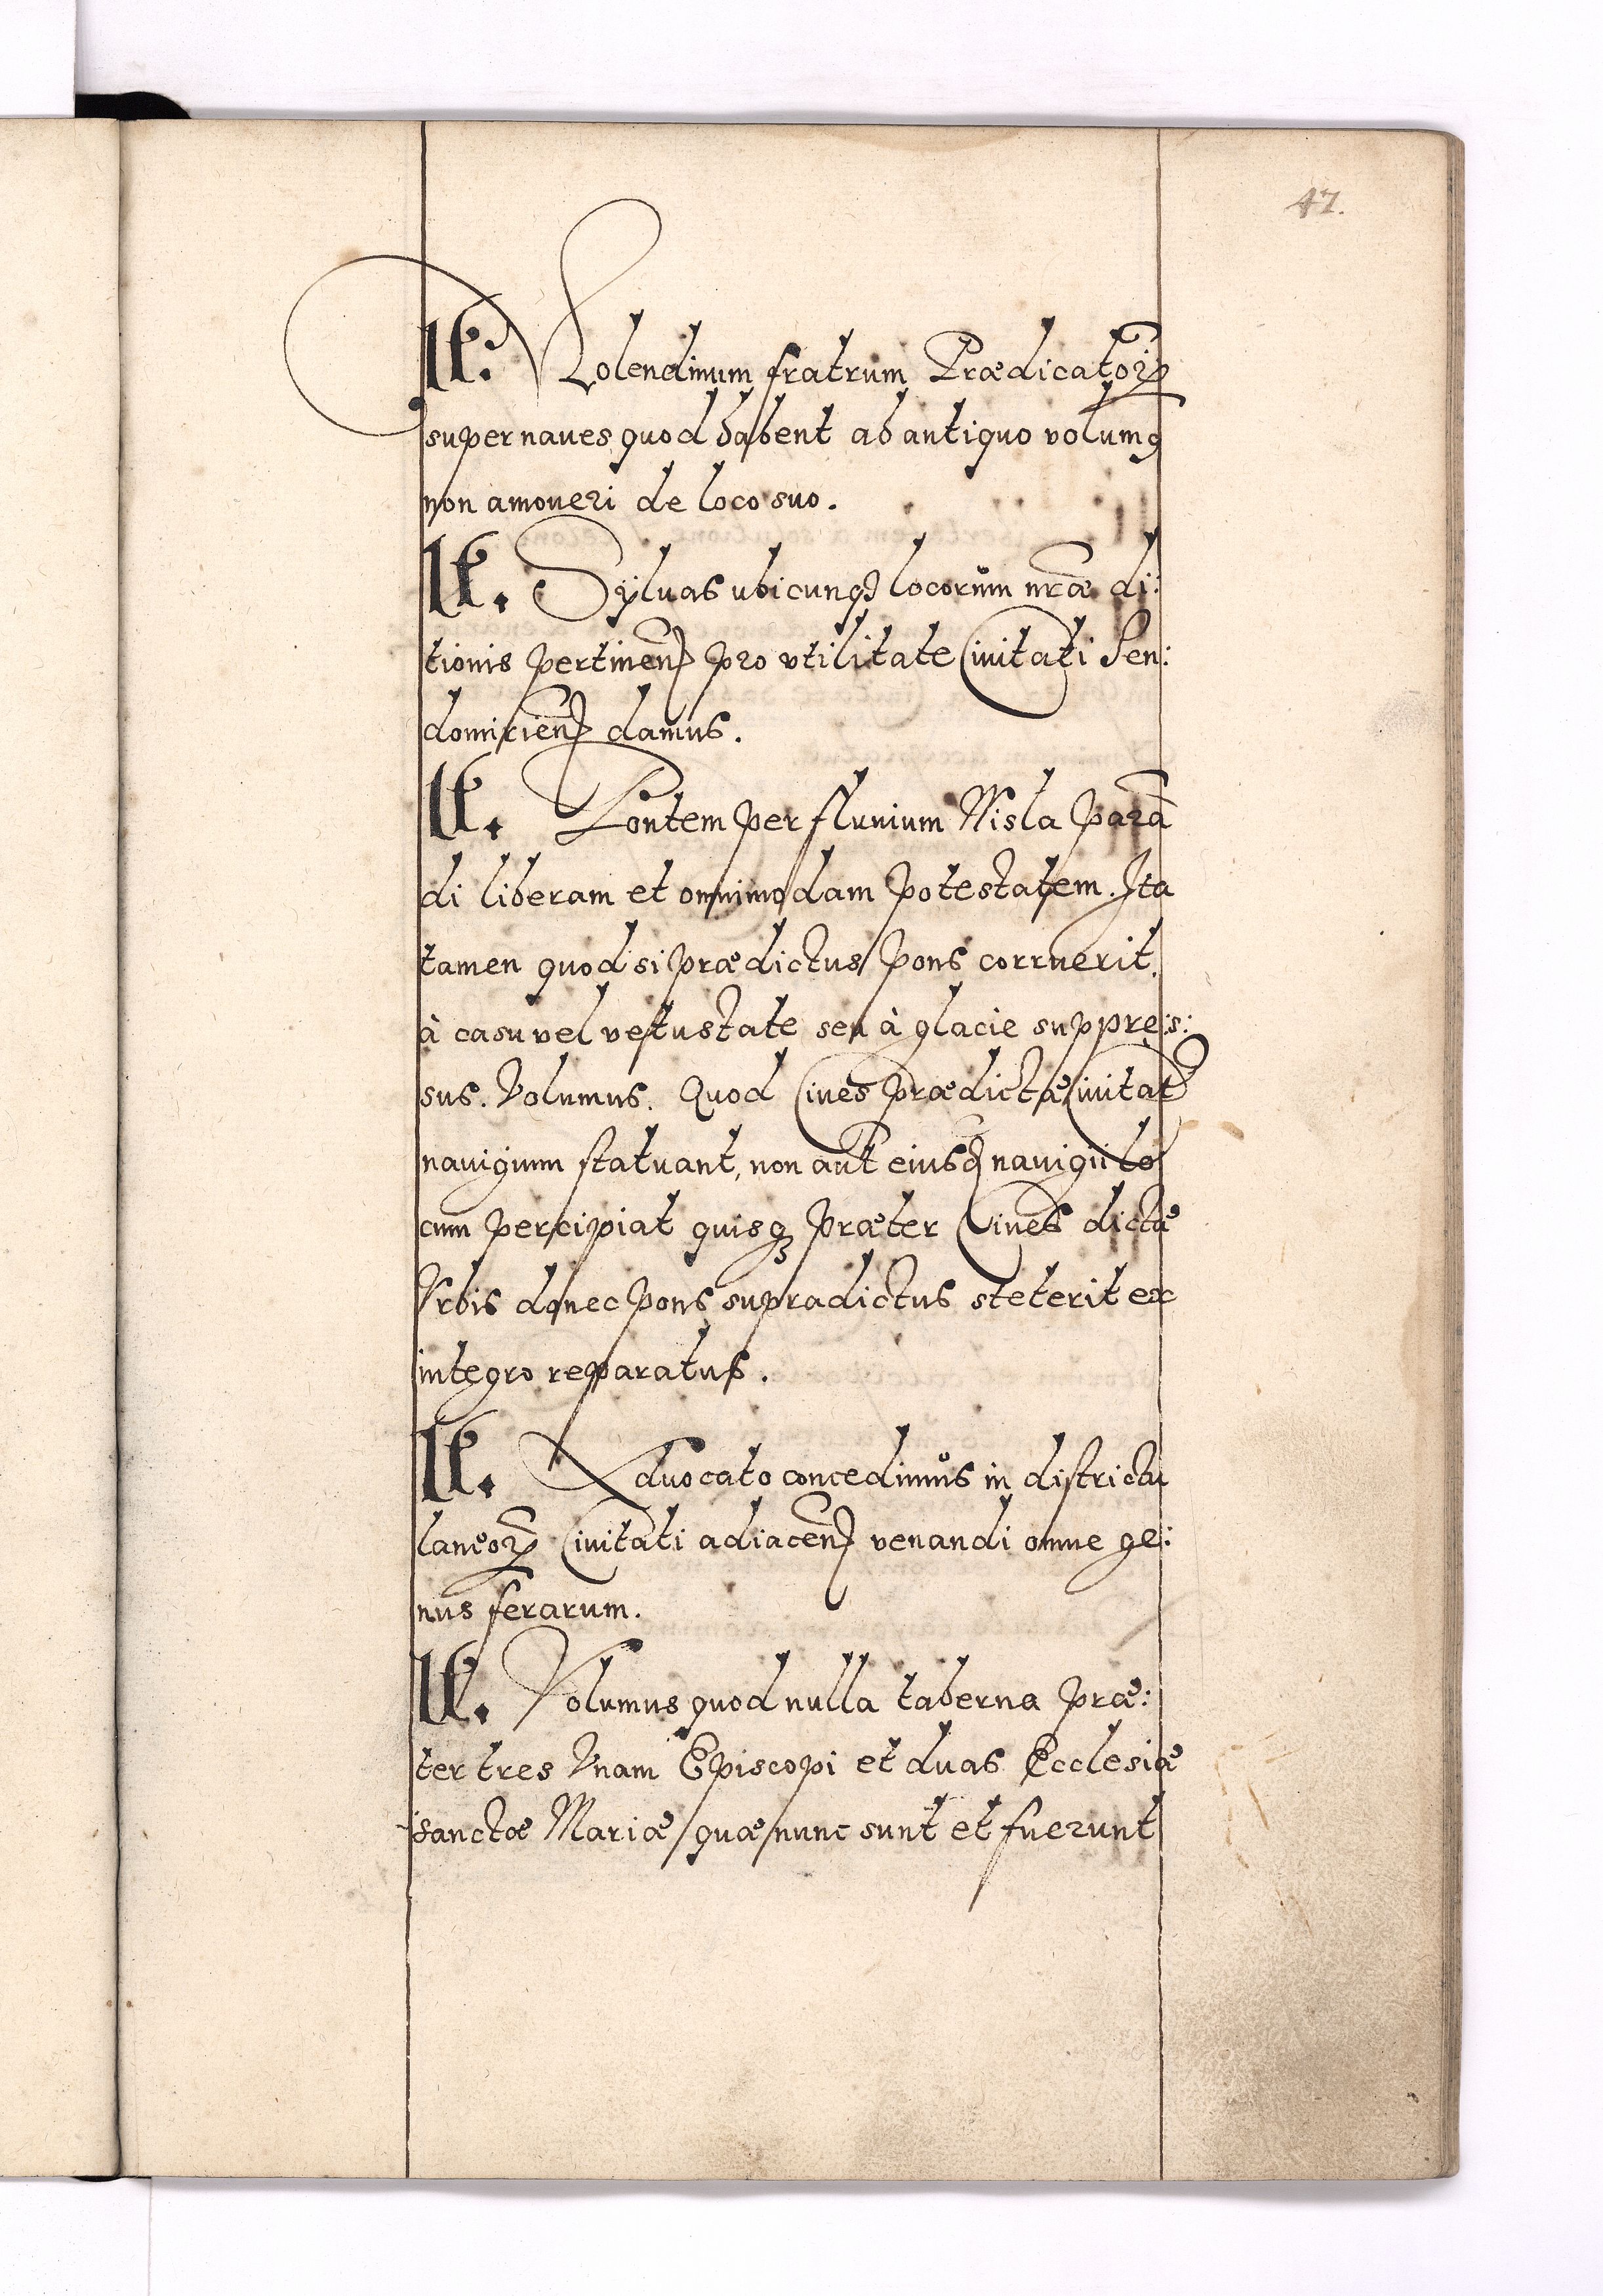 47.
It: Molendinum fratrum Prædicatoꝝ
super naues quod habent ab antiquo volumꝰ
non amoueri de loco suo.
It. Syluas ubicunqꝫ locorum nr̃æ di:
tionis pertinen̄ pro vtilitate Ciuitati Sen:
domirien̄ damus.
It. Pontem per fluuium Wisla parā
di liberam et omnimodam potestatem. Ita
tamen quod si prædictus pons corruerit,
à casu vel vetustate seu à glacie suppres:
sus. Volumus. Quod Ciues prædictæ Ciuitat̃
nauigium statuant, non aut̃ eiusd̃ nauigii lo
cum percipiat quisqꝫ præter Ciues dictæ
Vrbis donec pons supradictus steterit ex
integro reparatus.
It. Aduocato concedimus in districtu
laneoꝝ Ciuitati adiacen̄ venandi omne ge:
nus ferarum.
It. Volumus quod nulla taberna præ:
ter tres Vnam Episcopi et duas Ecclesiæ
sanctæ Mariæ quæ nunc sunt et fuerunt